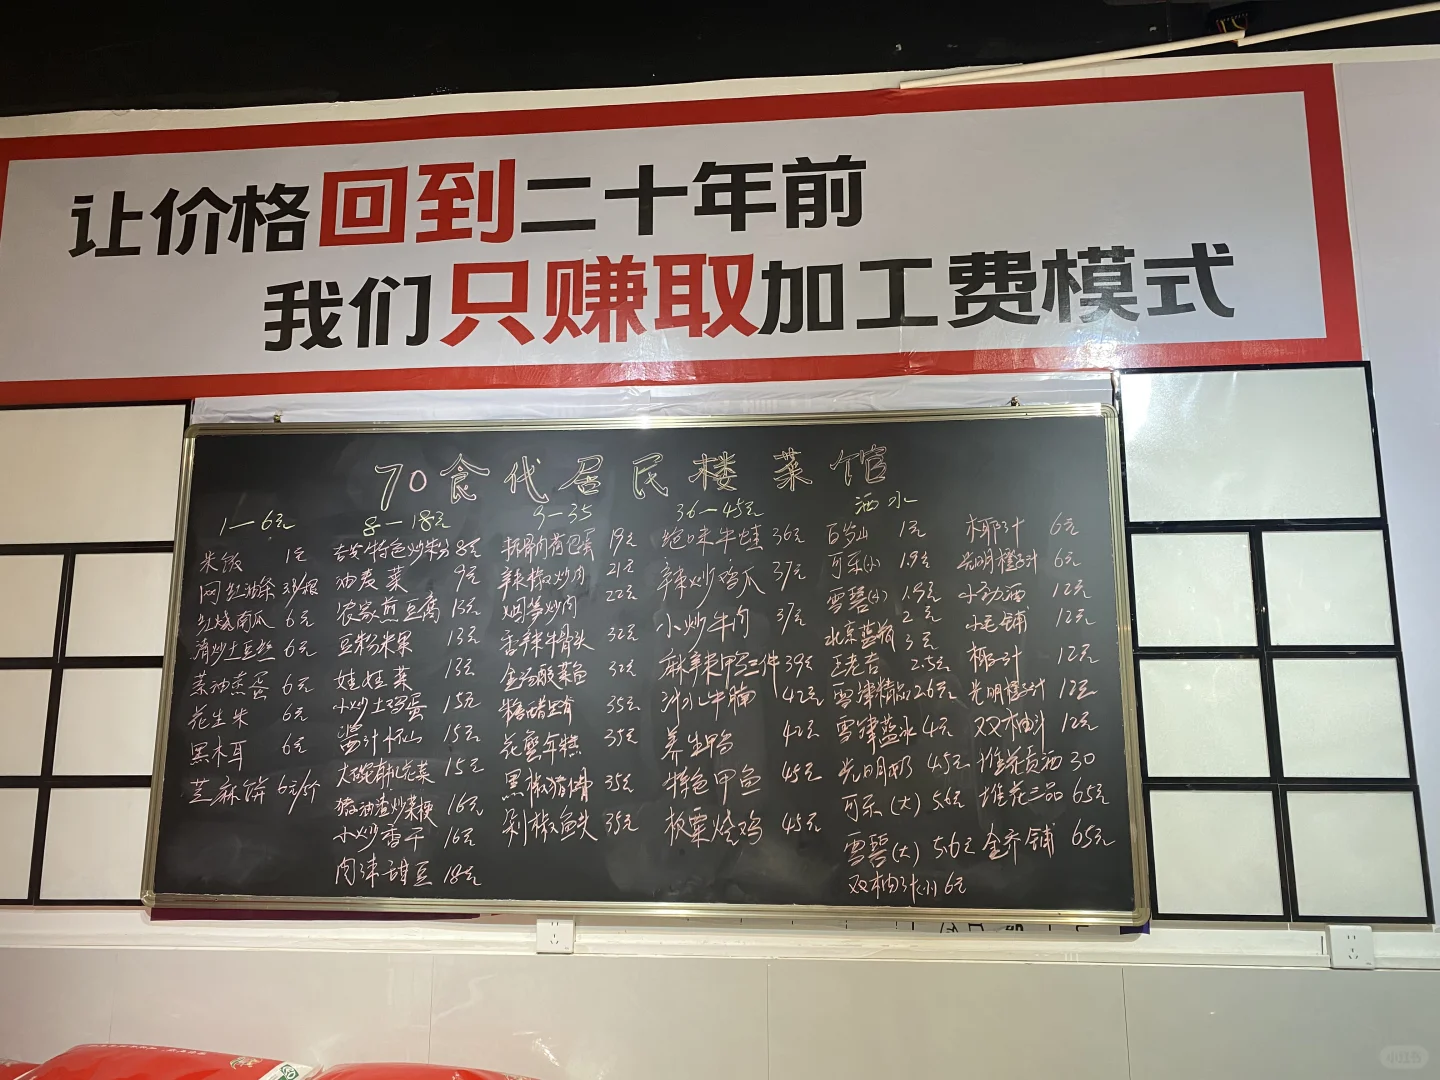 让价格回到二十年前
我们只赚取加工费模式
70食代居民楼菜馆
1—6元
米饭 1元
网红油条 3元/根
红烧南瓜 6元
清炒土豆丝 6元
茶油煮蛋 6元
花生米 6元
黑木耳 6元
芝麻饼 6元/个
8—18元
吉安特色炒米粉 8元
油麦菜 9元
农家煎豆腐 13元
豆粉米果 13元
娃娃菜 13元
小炒土鸡蛋 15元
酱汁 15元
大碗有机花菜 15元
猪油渣炒菜梗 16元
小炒香干 16元
肉沫甜豆 18元
9—35
荷包蛋 19元
辣椒炒肉 21元
烟笋炒肉 22元
香辣牛骨头 32元
金汤酸菜鱼 32元
糖醋 35元
花蟹年糕 35元
黑椒猪骨 35元
剁椒鱼头 35元
36—45元
绝味牛蛙 36元
辣炒鸡爪 37元
小炒牛肉 37元
麻辣鸭三件 39元
牛腩 42元
养生鸭 42元
特色甲鱼 45元
板栗烧鸡 45元
酒水
百岁山 1元
可乐(小) 1.9元
雪碧(小) 1.9元
北京蓝瓶 2元
王老吉 3元
雪津精品 2.5元
雪津蓝冰 2.6元
4元
光明奶 4.5元
可乐(大) 5.6元
雪碧(大) 5.6元
双柚汁(小) 6元
椰汁 6元
光明橙汁 6元
小劲酒 12元
小毛铺 12元
椰汁 12元
光明橙汁 12元
双柚汁 12元
堆花贡酒 30
堆花三品 65元
金荞铺 65元
小红书